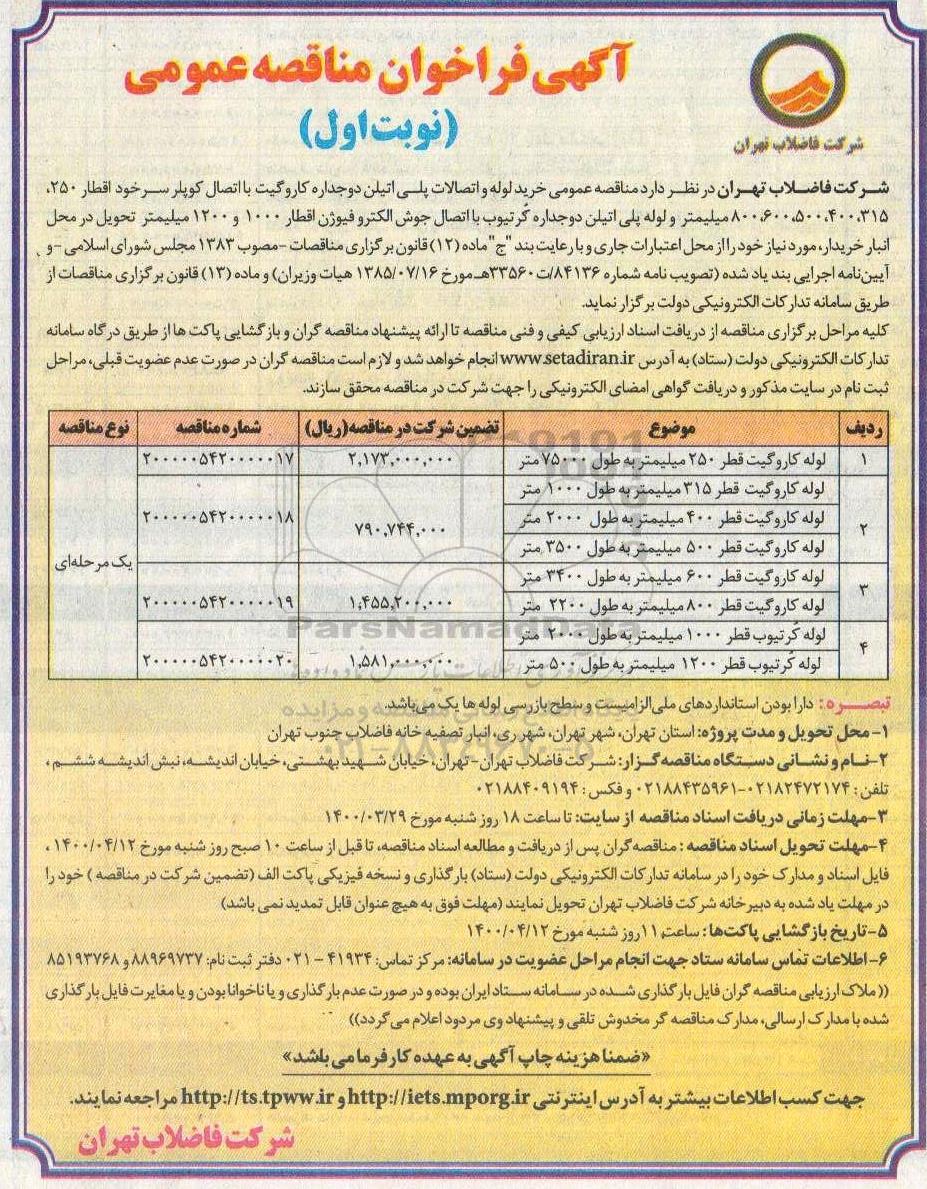 آگهی فراخوان مناقصه عمومی
(نوبت اول)
شرکت فاضلاب تهران
شرکت فاضلاب تهران در نظر دارد مناقصه عمومی خرید لوله و اتصالات پلی اتیلن دوجداره کاروگیت با اتصال کوپلر سرخود اقطار ۲۵۰،
۸۰۰،۶۰۰،۵۰۰،۴۰۰،۳۱۵ میلیمتر و لوله پلی اتیلن دوجداره کُرتیوب با اتصال جوش الکتروفیوژن اقطار ۱۰۰۰ و ۱۲۰۰ میلیمتر تحویل در محل
انبار خریدار، مورد نیاز خود را از محل اعتبارات جاری و با رعایت بند "ج" ماده (۱۲) قانون برگزاری مناقصات -مصوب ۱۳۸۳ مجلس شورای اسلامی -و
آیین‌نامه اجرایی بند یاد شده (تصویب نامه شماره ۸۴۱۳۶/ت۳۳۵۶۰هـ مورخ ۱۳۸۵/۰۷/۱۶ هیات وزیران) و ماده (۱۳) قانون برگزاری مناقصات از
طریق سامانه تدارکات الکترونیکی دولت برگزار نماید.
کلیه مراحل برگزاری مناقصه از دریافت اسناد ارزیابی کیفی و فنی مناقصه تا ارائه پیشنهاد مناقصه گران و بازگشایی پاکت ها از طریق درگاه سامانه
تدارکات الکترونیکی دولت (ستاد) به آدرس www.setadiran.ir انجام خواهد شد و لازم است مناقصه گران در صورت عدم عضویت قبلی، مراحل
ثبت نام در سایت مذکور و دریافت گواهی امضای الکترونیکی را جهت شرکت در مناقصه محقق سازند.
ردیف موضوع تضمین شرکت در مناقصه (ریال) شماره مناقصه نوع مناقصه
۱ لوله کاروگیت قطر ۲۵۰ میلیمتر به طول ۷۵۰۰۰ متر ۲,۱۷۳,۰۰۰,۰۰۰ ۲۰۰۰۰۰۵۴۲۰۰۰۰۰۱۷
لوله کاروگیت قطر ۳۱۵ میلیمتر به طول ۱۰۰۰ متر
۲ لوله کاروگیت قطر ۴۰۰ میلیمتر به طول ۲۰۰۰ متر ۷۹۰,۷۴۴,۰۰۰ ۲۰۰۰۰۰۵۴۲۰۰۰۰۰۱۸
لوله کاروگیت قطر ۵۰۰ میلیمتر به طول ۳۵۰۰ متر
یک مرحله‌ای
۳ لوله کاروگیت قطر ۶۰۰ میلیمتر به طول ۳۴۰۰ متر
لوله کاروگیت قطر ۸۰۰ میلیمتر به طول ۲۲۰۰ متر ۱,۴۵۵,۲۰۰,۰۰۰ ۲۰۰۰۰۰۵۴۲۰۰۰۰۰۱۹
۴ لوله کُرتیوب قطر ۱۰۰۰ میلیمتر به طول ۲۰۰۰ متر
لوله کُرتیوب قطر ۱۲۰۰ میلیمتر به طول ۵۰۰ متر ۱,۵۸۱,۰۰۰,۰۰۰ ۲۰۰۰۰۰۵۴۲۰۰۰۰۰۲۰
ParsNamadData
تبصره: دارا بودن استانداردهای ملی الزامیست و سطح بازرسی لوله ها یک می‌باشد.
۱- محل تحویل و مدت پروژه: استان تهران، شهر تهران، شهر ری، انبار تصفیه خانه فاضلاب جنوب تهران
۰۲۱-۸۸۳۴۹۶۷۰-۵
۲-نام و نشانی دستگاه مناقصه‌گزار: شرکت فاضلاب تهران-تهران، خیابان شهید بهشتی، خیابان اندیشه، نبش اندیشه ششم ،
تلفن: ۰۲۱۸۲۴۷۲۱۷۴-۰۲۱۸۸۴۳۵۹۶۱ و فکس: ۰۲۱۸۸۴۰۹۱۹۴
۳-مهلت زمانی دریافت اسناد مناقصه از سایت: تا ساعت ۱۸ روز شنبه مورخ ۱۴۰۰/۰۳/۲۹
۴-مهلت تحویل اسناد مناقصه : مناقصه گران پس از دریافت و مطالعه اسناد مناقصه، تا قبل از ساعت ۱۰ صبح روز شنبه مورخ ۱۴۰۰/۰۴/۱۲ ،
فایل اسناد و مدارک خود را در سامانه تدارکات الکترونیکی دولت (ستاد) بارگذاری و نسخه فیزیکی پاکت الف (تضمین شرکت در مناقصه ) خود را
در مهلت یاد شده به دبیرخانه شرکت فاضلاب تهران تحویل نمایند (مهلت فوق به هیچ عنوان قابل تمدید نمی باشد)
۵-تاریخ بازگشایی پاکت‌ها: ساعت ۱۱ روز شنبه مورخ ۱۴۰۰/۰۴/۱۲
۶-اطلاعات تماس سامانه ستاد جهت انجام مراحل عضویت در سامانه: مرکز تماس: ۴۱۹۳۴ - ۰۲۱ دفتر ثبت نام: ۸۸۹۶۹۷۳۷ و ۸۵۱۹۳۷۶۸
(( ملاک ارزیابی مناقصه گران فایل بارگذاری شده در سامانه ستاد ایران بوده و در صورت عدم بارگذاری و یا ناخوانا بودن و یا مغایرت فایل بارگذاری
شده با مدارک ارسالی، مدارک مناقصه گر مخدوش تلقی و پیشنهاد وی مردود اعلام می گردد))
«ضمنا هزینه چاپ آگهی به عهده کارفرما می باشد»
جهت کسب اطلاعات بیشتر به آدرس اینترنتی http://iets.mporg.ir و http://ts.tpww.ir مراجعه نمایند.
شرکت فاضلاب تهران